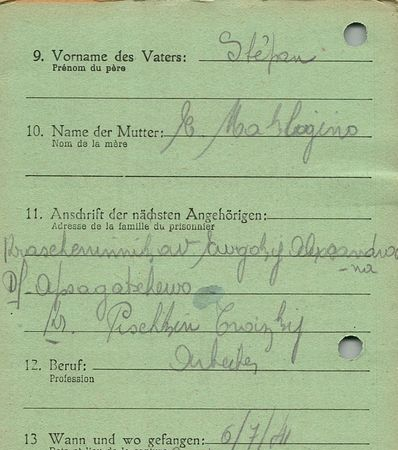 9. Vorname des Vaters: Stépan
Prénom du père
10. Name der Mutter: E Mahlogino
Nom de la mère
11. Anschrift der nächsten Angehörigen:
Adresse de la famille du prisonnier
Df.
Kr. Pischkin Troizkij
12. Beruf: Arbeiter
Profession
13 Wann und wo gefangen: 6/7/41